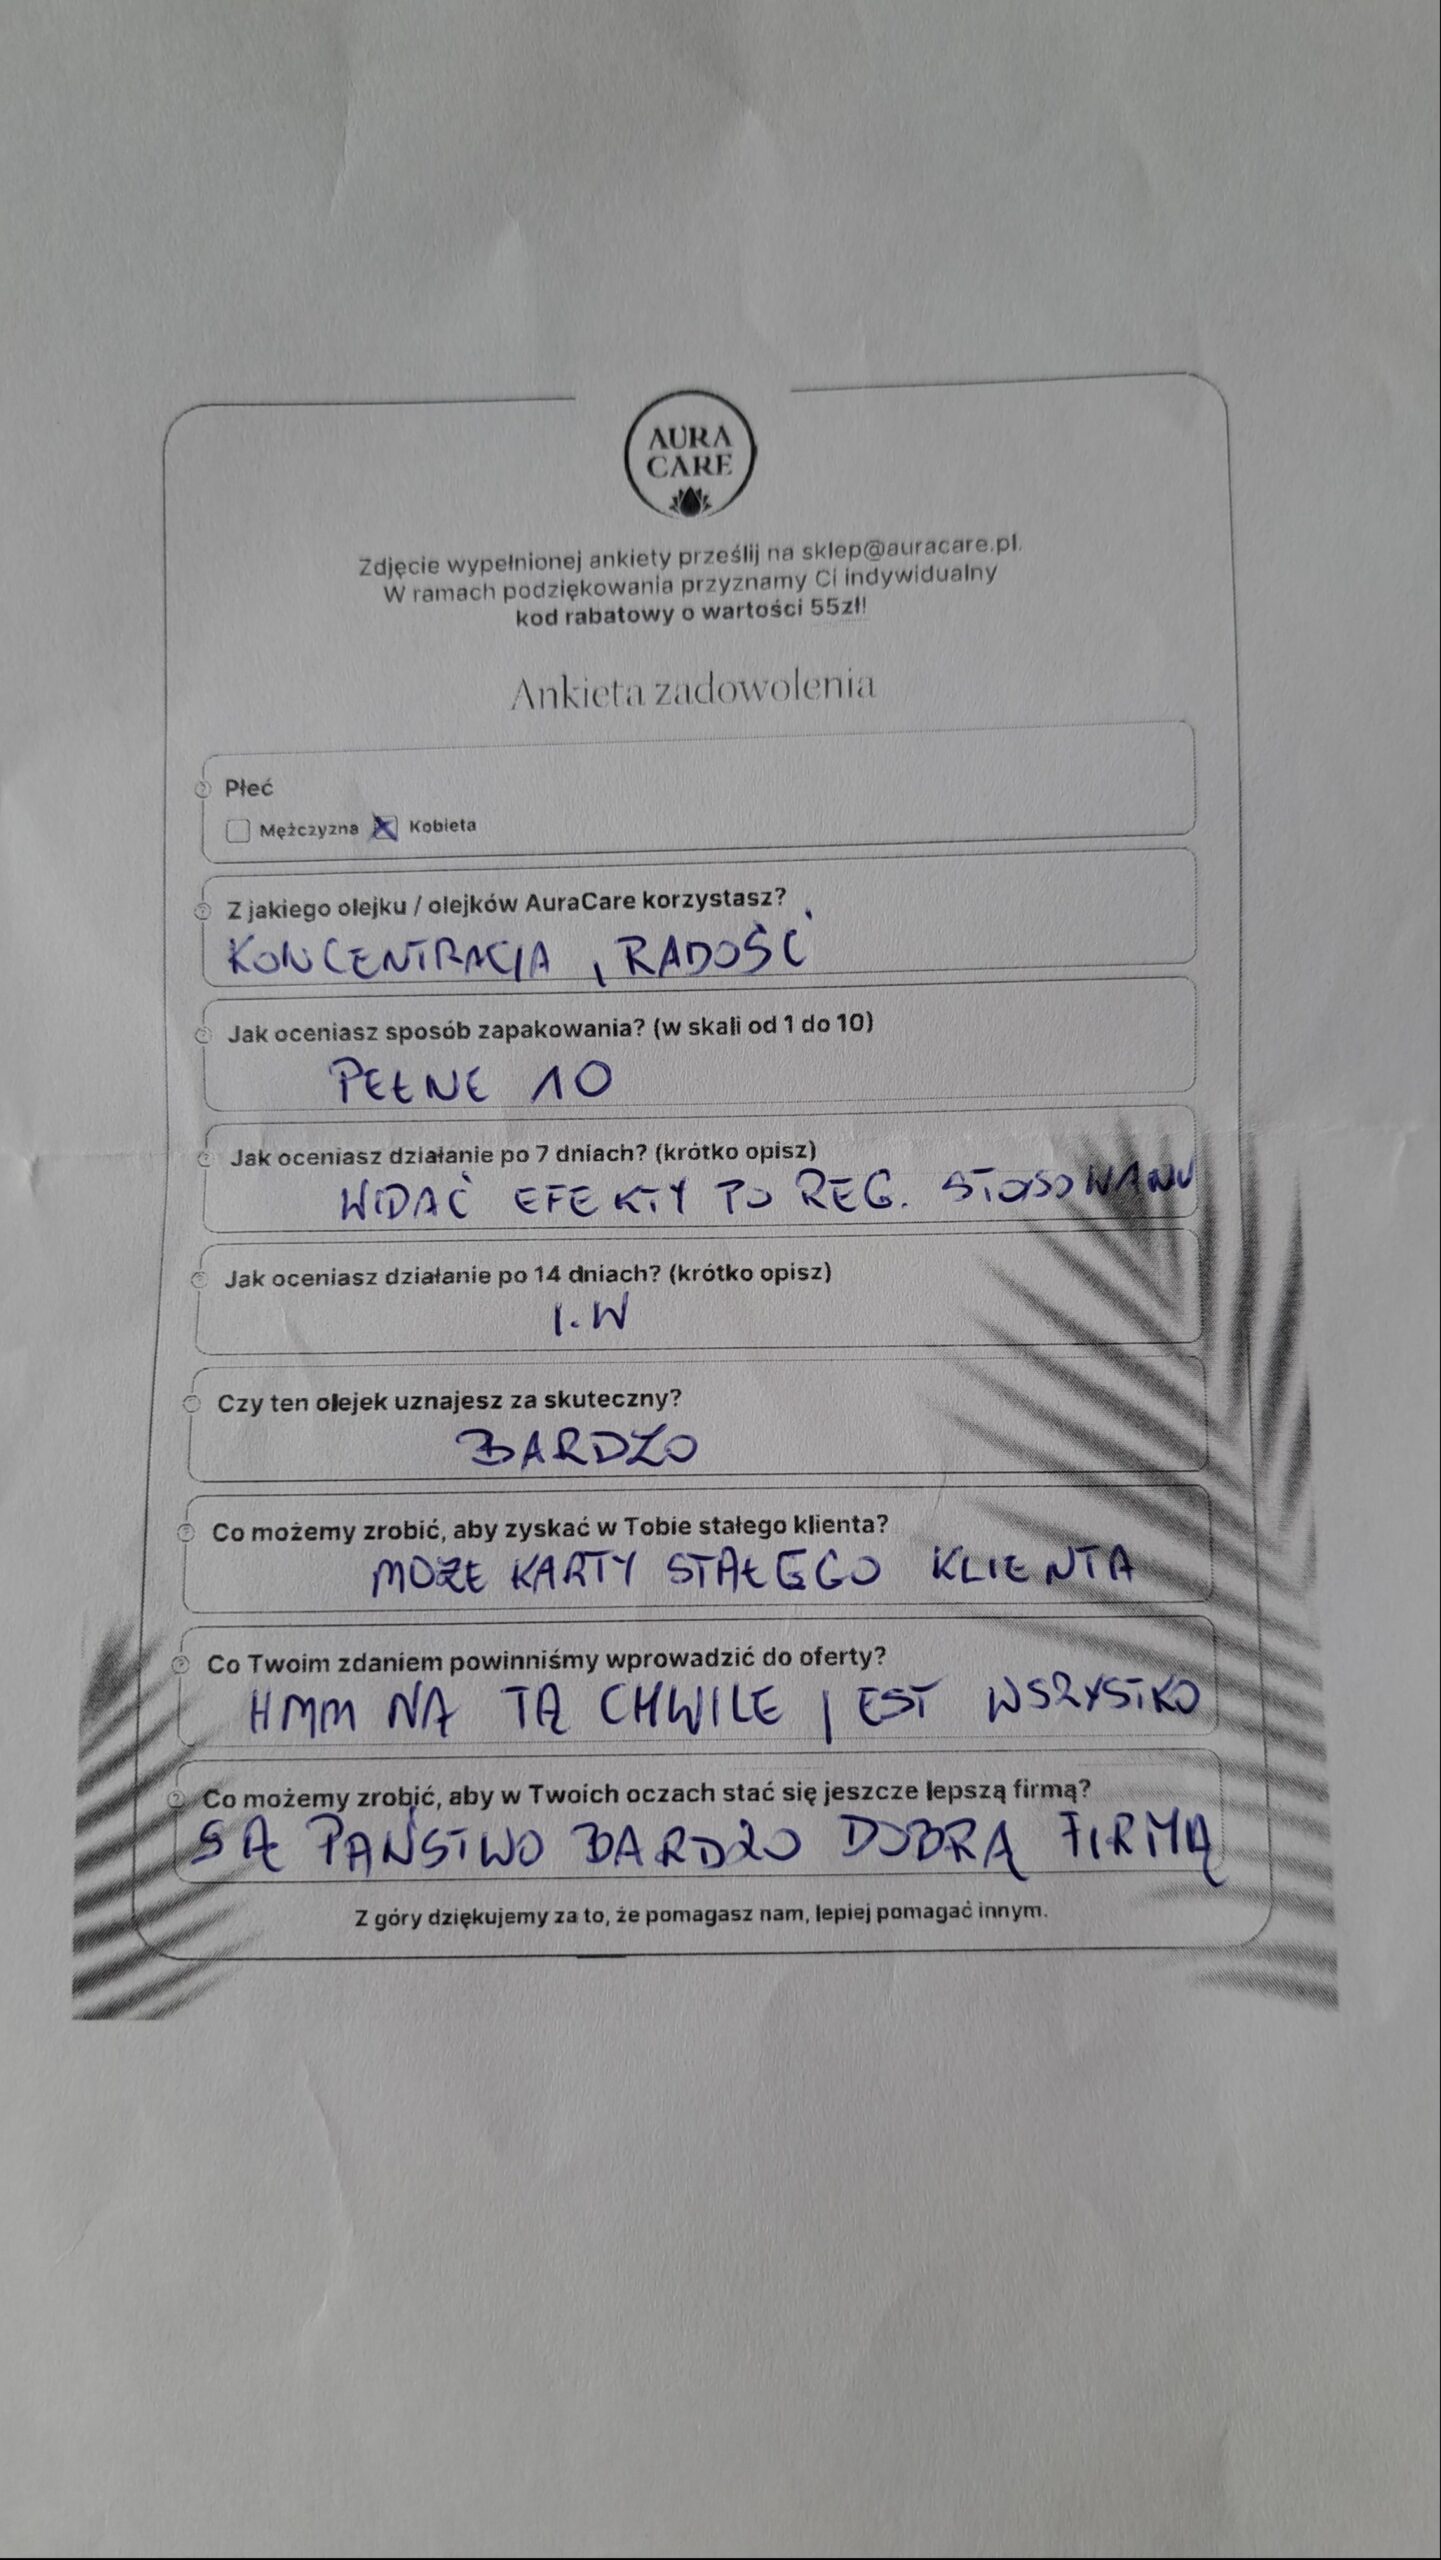 AURA
CARE
Zdjęcie wypełnionej ankiety prześlij na sklep@auracare.pl.
W ramach podziękowania przyznamy Ci indywidualny
kod rabatowy o wartości 55zł!
Ankieta zadowolenia
Płeć
Mężczyzna Kobieta
Z jakiego olejku / olejków AuraCare korzystasz?
KONCENTRACJA , RADOŚĆ
Jak oceniasz sposób zapakowania? (w skali od 1 do 10)
PEŁNE 10
Jak oceniasz działanie po 7 dniach? (krótko opisz)
WIDAĆ EFEKTY PO REG. STOSOWANIU
Jak oceniasz działanie po 14 dniach? (krótko opisz)
J.W
Czy ten olejek uznajesz za skuteczny?
BARDZO
Co możemy zrobić, aby zyskać w Tobie stałego klienta?
MOŻE KARTY STAŁEGO KLIENTA
Co Twoim zdaniem powinniśmy wprowadzić do oferty?
HMM NA TĄ CHWILE JEST WSZYSTKO
Co możemy zrobić, aby w Twoich oczach stać się jeszcze lepszą firmą?
SĄ PAŃSTWO BARDZO DOBRĄ FIRMĄ
Z góry dziękujemy za to, że pomagasz nam, lepiej pomagać innym.